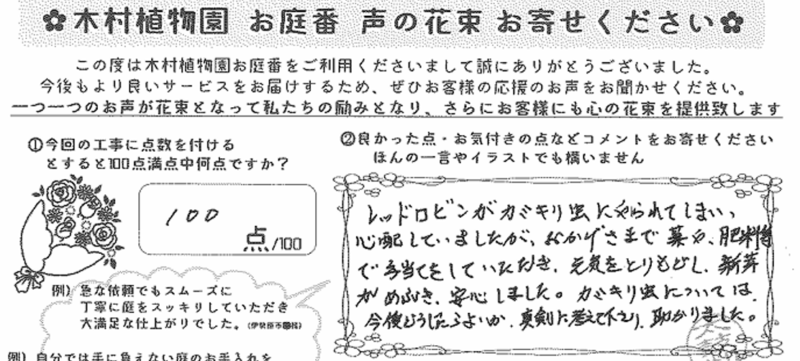 ✿木村植物園 お庭番 声の花束 お寄せください✿
この度は木村植物園お庭番をご利用くださいまして誠にありがとうございました。
今後もより良いサービスをお届けするため、ぜひお客様の応援のお声をお聞かせください。
一つ一つのお声が花束となって私たちの励みとなり、さらにお客様にも心の花束を提供致します
①今回の工事に点数を付ける
とすると100点満点中何点ですか？
100
点/100
例）急な依頼でもスムーズに
丁寧に庭をスッキリしていただき
大満足な仕上がりでした。(伊勢原市T様)
例）自分では手に負えない庭のお手入れを
②良かった点・お気付きの点などコメントをお寄せください
ほんの一言やイラストでも構いません
レッドロビンがカミキリ虫にやられてしまい、
心配していましたが、おかげさまで薬や、肥料等
で手当てをしていただき、元気をとりもどし、新芽
がめぶき、安心しました。カミキリ虫については
今後どうしたらよいか、真剣に考えて下さり、助かりました。